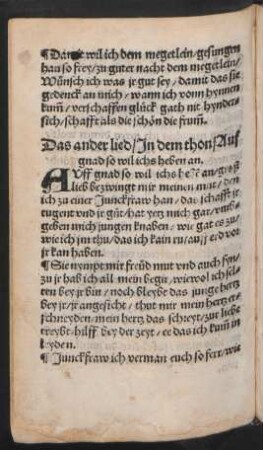 ¶Damit wil ich dem megetlein/gesungen
han so frey/zu guter nacht dem megetlein/
Wünsch ich was jr gut sey/damit das sie
gedenck an mich/wann ich vonn hynnen
kum̃/verschaffen glück gath nit hynder⸗
sich/schafft als die schön die frum̃.
Das ander lied/In dem thon/Auf
gnad so wil ichs heben an.
AUff gnad so wil ichs an/groß
lieb bezwingt mir meinen můt/den
ich zu einer Junckfraw han/das schafft jr
tugent vnd jr güt/hat yetz mich gar/vmb⸗
geben mich jungen knaben/wie gat es zů/
wie ich jm thu/das ich kain rů/ vor
jr kan haben.
¶Sie nympt mir freüd mut vnd auch syn/
zu jr hab ich all mein begir/wiewol ich sel⸗
ten bey jr bin/noch bleybt das junge hertz
bey jr/jr angesicht/thut mir mein hertz er⸗
schneyden/mein hertz das schreyt/zur liebe
treybt/hilff bey der zeyt/ee das ich kum̃ in
leyden.
¶Junckfraw ich verman euch so fert/wie